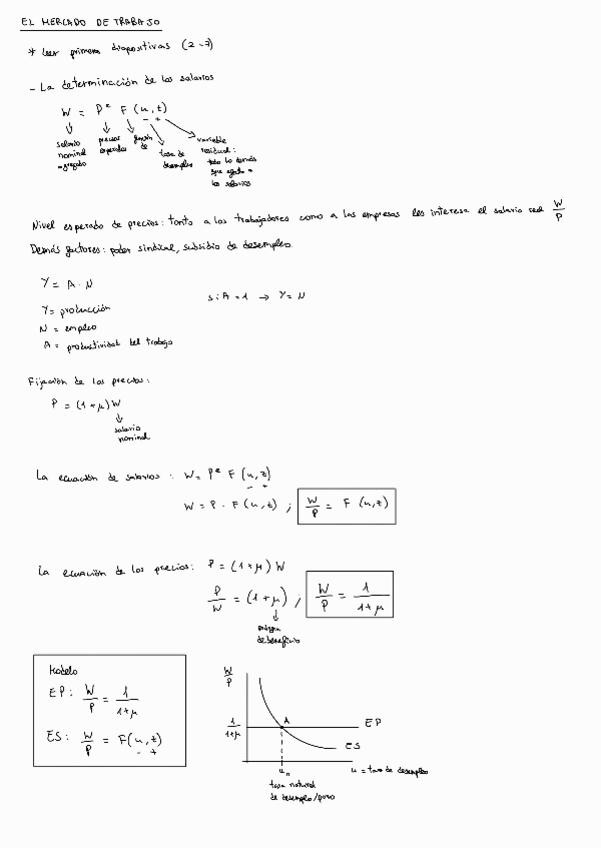 EL MERCADO DE TRABAJO
* Leer primeras diapositivas (2-7)
- La determinación de los salarios
W = Pᵉ F (u, z)
- +
salario nominal agregado
precios esperados
función de
tasa de desempleo
variable residual: todo lo demás que afecta a los salarios
Nivel esperado de precios: tanto a los trabajadores como a las empresas les interesa el salario real W/P
Demás factores: poder sindical, subsidio de desempleo
Y = A · N
si A = 1 → Y = N
Y = producción
N = empleo
A = productividad del trabajo
Fijación de los precios:
P = (1 + μ) W
salario nominal
La ecuación de salarios: W = Pᵉ F (u, z)
- +
W = P · F (u, z) ; W/P = F (u, z)
La ecuación de los precios: P = (1 + μ) W
P/W = (1 + μ) ; W/P = 1/1+μ
margen de beneficio
Modelo
EP: W/P = 1/1+μ
ES: W/P = F(u, z)
- +
W/P
1/1+μ
A
EP
ES
uₙ
u = tasa de desempleo
tasa natural
de desempleo/paro